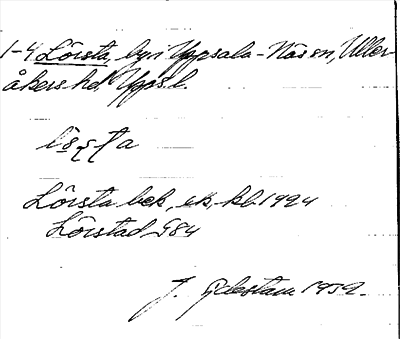 1-4 Lörsta, byn Uppsala-Näs sn, Uller-
åkers hd. Upps. l.
Lörsta bek, ek, kb 1924
Lörstad G84
J. 1952.